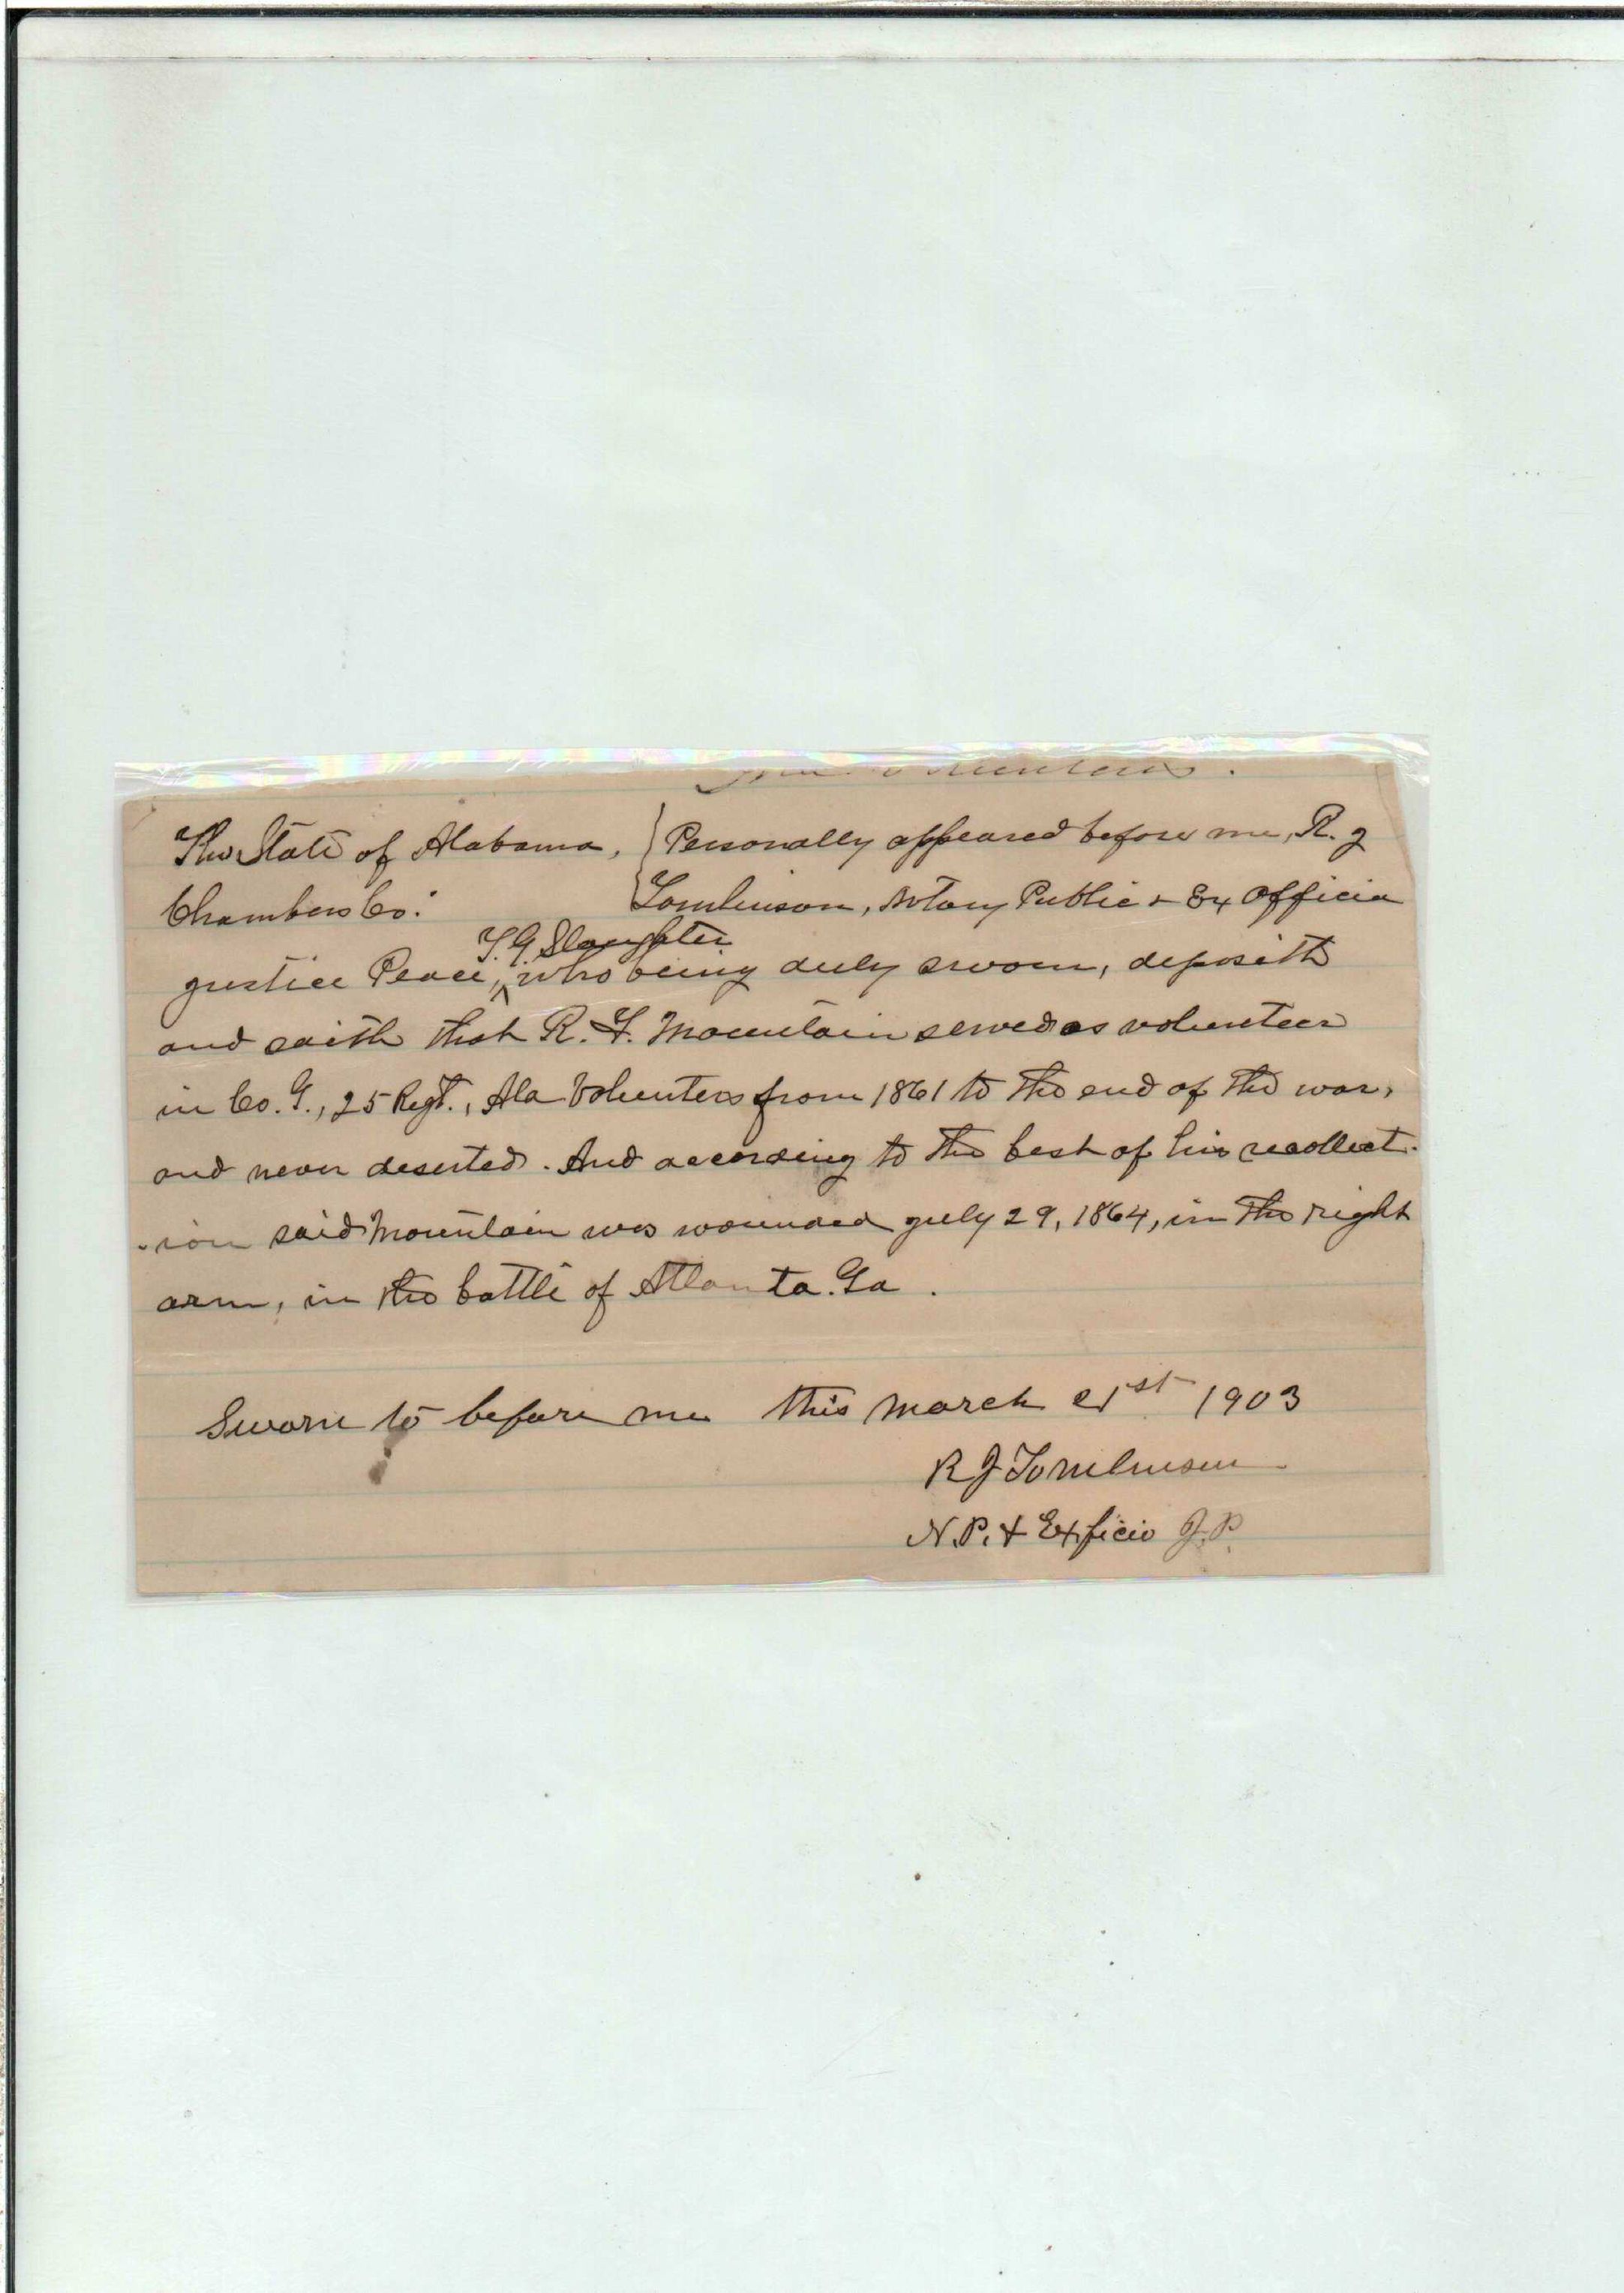 Volunteers.
The State of Alabama, } Personally appeared before me, R. J
Chambers Co. Tomlinson, Notary Public & Ex Officio
T. G. Slaughter
Justice Peace, ^ who being duly sworn, deposeth
and saith that R. F. Mountain served as volunteer
in Co. G., 25 Regt., Ala Volunteers from 1861 to the end of the war,
and never deserted. And according to the best of his recollect-
-ion said Mountain was wounded July 29, 1864, in the right
arm, in the battle of Atlanta. Ga.
Sworn to before me this March 21st 1903
R J Tomlinson
N. P. & Exficio J. P.